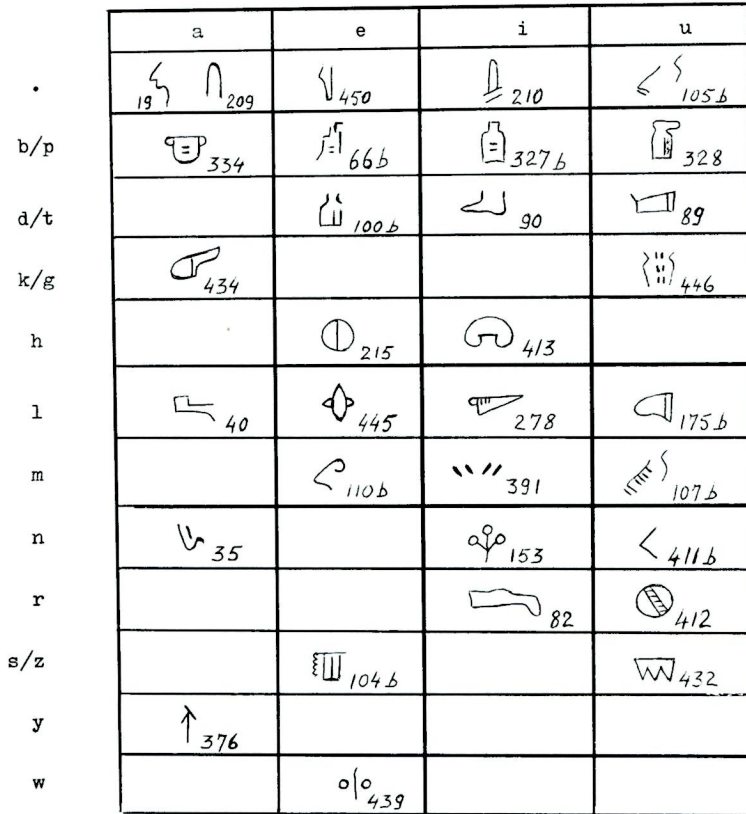 a e i u
. 19 209 450 210 105b
b/p 334 66b 327b 328
d/t 100b 90 89
k/g 434 446
h 215 413
l 40 445 278 175b
m 110b 391 107b
n 35 153 411b
r 82 412
s/z 104b 432
y 376
w 439